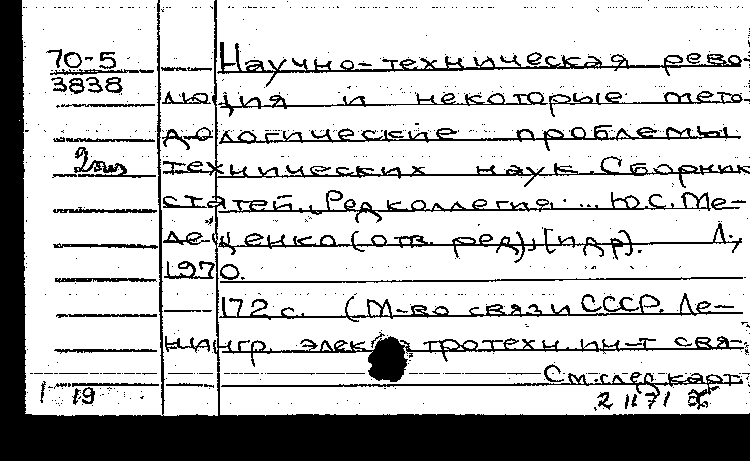 70-5
3838
2 экз
Научно-техническая рево-
люция и некоторые мето-
дологические проблемы
технических наук. Сборник
статей. Редколлегия: ... Ю.С. Ме-
лещенко (отв. ред), [и др]. Л.,
1970.
172 с. (М-во связи СССР. Ле-
нингр. электротехн. ин-т свя-
См. след карт
19
2 II 71